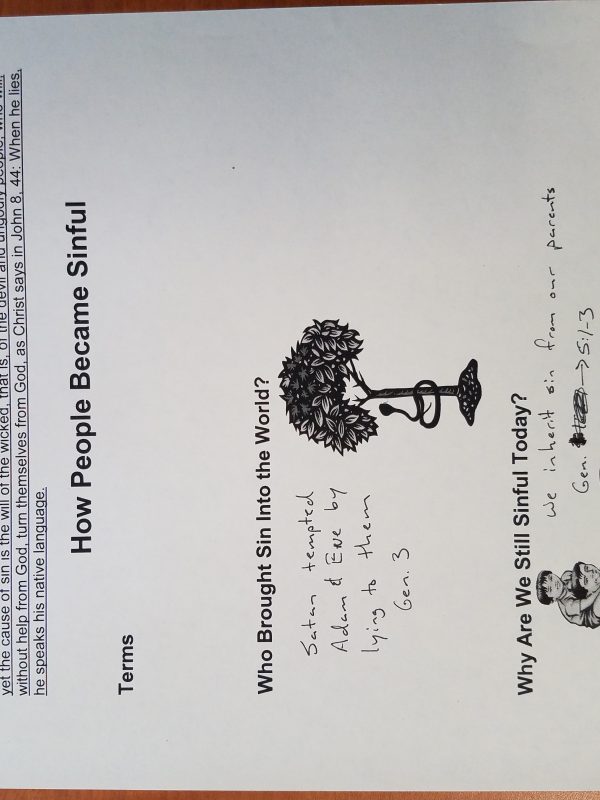 yet the cause of sin is the will of the wicked, that is, of the devil and ungodly people, who will,
without help from God, turn themselves from God, as Christ says in John 8, 44: When he lies,
he speaks his native language.
How People Became Sinful
Terms
Who Brought Sin Into the World?
Satan tempted
Adam & Eve by
lying to them
Gen. 3
Why Are We Still Sinful Today?
We inherit sin from our parents
Gen. → 5:1-3